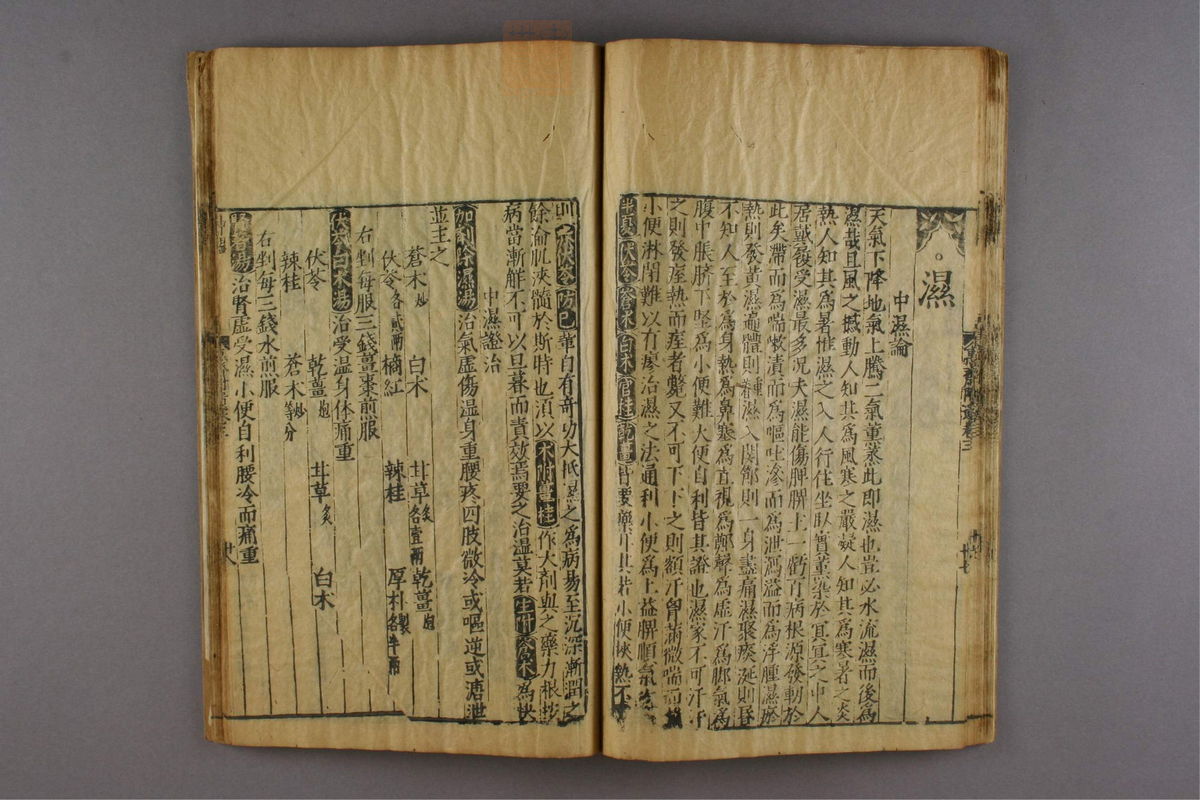 濕
中濕論
天氣下降地氣上騰二氣薫蒸此即濕也豈必水流濕而後為
濕哉且風之撼動人知其為風寒之嚴凝人知其為寒暑之炎
熱人知其為暑惟濕之入人行住坐臥實薫染於冥冥之中人
居戴履受濕最多況夫濕能傷脾脾土一虧百病根源發動於
此矣滯而為喘嗽漬而為嘔吐滲而為泄瀉溢而為浮腫濕瘀
熱則發黃濕遍體則重著濕入關節則一身盡痛濕聚痰涎則昏
不知人至於為身熱為鼻塞為直視為鄭聲為虛汗為脚氣為
腹中脹臍下堅為小便難大便自利皆其證也濕家不可汗汗
之則發痓熱而痓者斃又不可下下之則額汗胷滿微喘而
小便淋閉難以有瘳治濕之法通利小便為上益脾順氣
半夏伏苓蒼朮白朮官桂乾薑皆要藥 其若小便 熱不
則 朮伏苓防己 自有奇功大抵濕之為病易至沉深漸潤之
餘淪肌浹髓於斯時也湏以朮附薑桂作大劑與之藥力 
病當漸觧不可以旦暮而責效焉要之治温莫若生附蒼朮為
中濕證治
加劑除濕湯治氣虛傷温身重腰疼四肢微冷或嘔逆或溏泄
並主之
蒼朮炒 白朮 甘草炙各壹兩 乾薑炮
伏苓各貳兩 橘紅 辣桂 厚朴製各半兩
右剉每服三錢薑棗煎服
伏苓白朮湯治受温身体痛重
伏苓 乾薑炮 甘草炙 白朮
辣桂 蒼朮炒等分
右剉每三錢水煎服
腎著湯治腎虛受濕小便自利腰冷而痛重